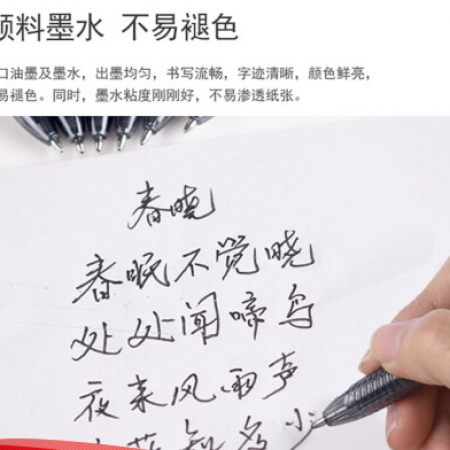 颜料墨水 不易褪色
口油墨及墨水，出墨均匀，书写流畅，字迹清晰，颜色鲜亮，
易褪色。同时，墨水粘度刚刚好，不易渗透纸张。
春晓
春眠不觉晓
处处闻啼鸟
夜来风雨声
花落知多少